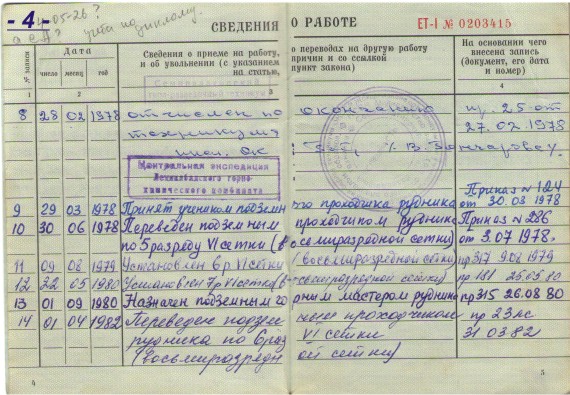 - 4 -
СВЕДЕНИЯ О РАБОТЕ
ЕТ-I № 0203415
№ записи
Дата
число месяц год
Сведения о приеме на работу, о переводах на другую работу
и об увольнении (с указанием причин и со ссылкой
на статью, пункт закона)
На основании чего
внесена запись
(документ, его дата
и номер)
1 2 3 4
8 28 02 1978 отчислен по окончанию пр. 25 от
техникума 27.02.1978
Центральная экспедиция
горно-
химического комбината
Приказ № 124
9 29 03 1978 Принят учеником подземного проходчика рудника от 30.03 1978
10 30 06 1978 Переведен подземным проходчиком рудника Приказ № 286
по 5 разряду VI сетки (восьмиразрядной сетки) от 3.07 1978.
11 09 08 1979 Установлен 6 р VI сетки (восьмиразрядной сетки) пр 317 9.08 1979
12 22 05 1980 Установлен 7 р VI сетки (восьмиразрядной сетки) пр 181 26.05.80
13 01 09 1980 Назначен подземным горным мастером рудника пр 315 26.08 80
14 01 04 1982 Переведен подземным проходчиком пр 23лс
рудника по 6 разр VI сетки 31.03.82
(восьмиразрядной сетки)
4 5